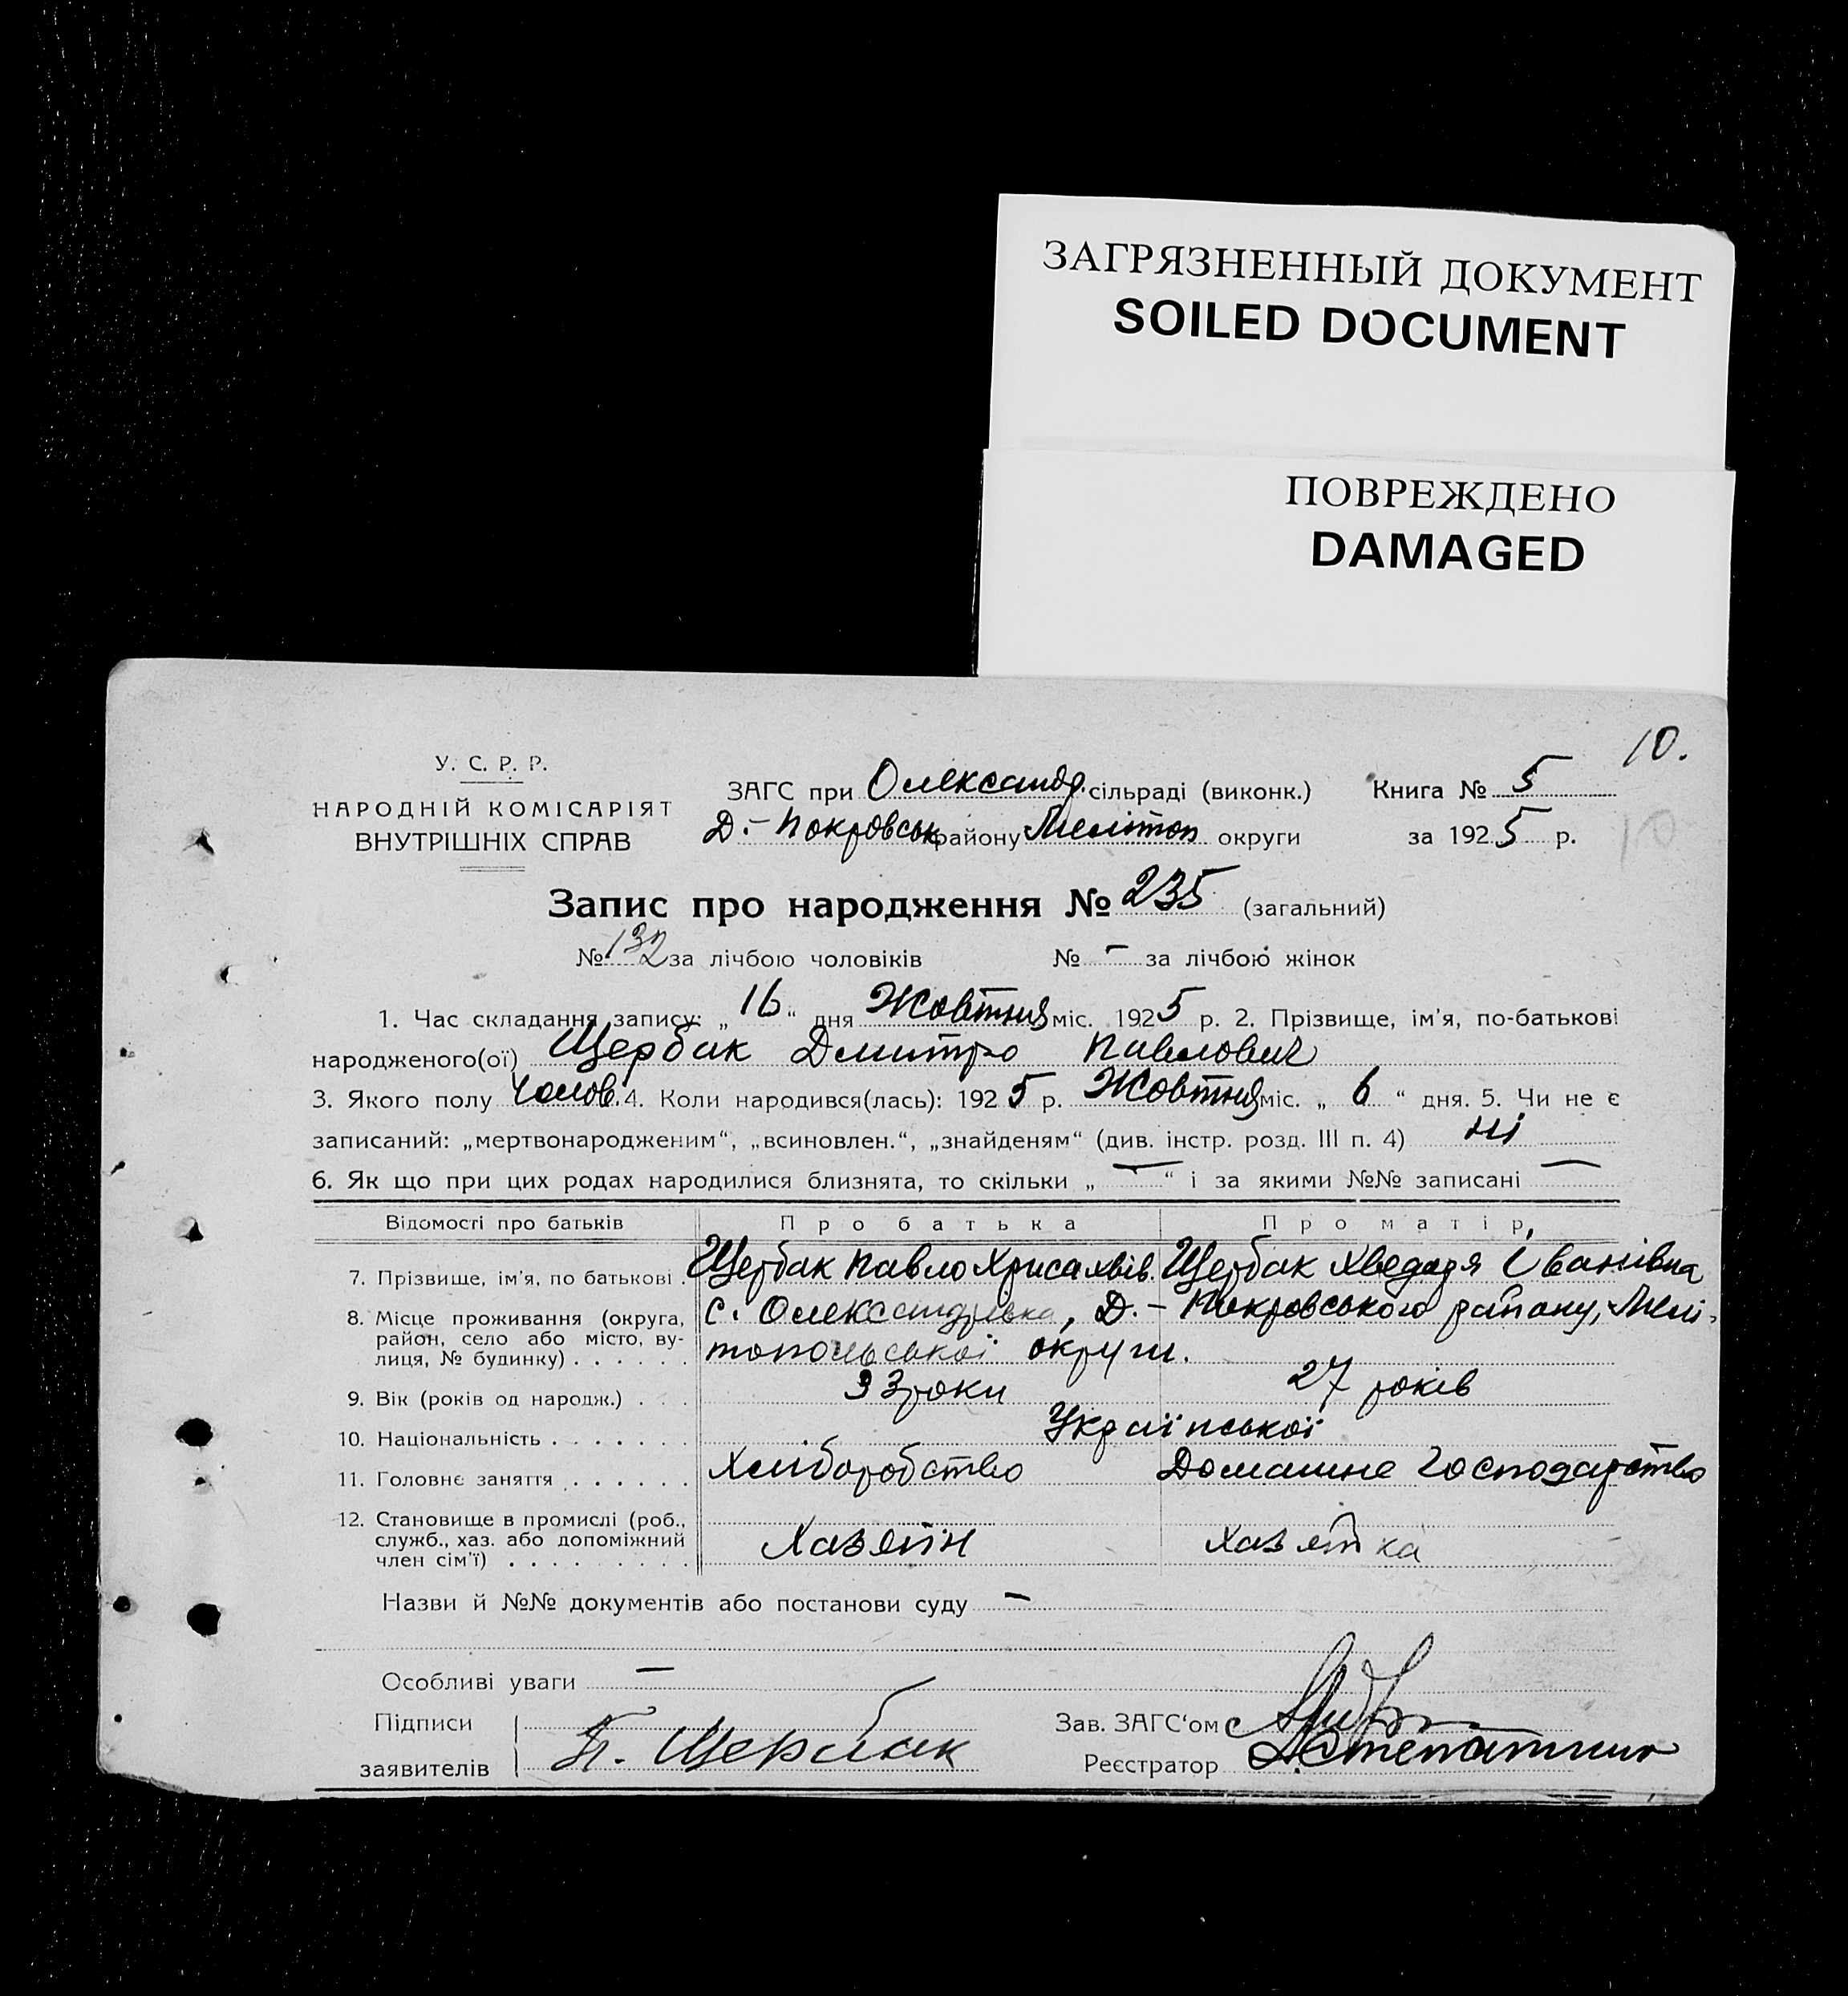 ЗАГРЯЗНЕННЫЙ ДОКУМЕНТ
SOILED DOCUMENT
ПОВРЕЖДЕНО
DAMAGED
10.
10
У. С. Р. Р.
НАРОДНІЙ КОМІСАРІЯТ
ВНУТРІШНІХ СПРАВ
ЗАГС при Олександр. сільраді (виконк.) Книга № 5
Д.-Покровськ району Меліітоп округи за 1925 р.
Запис про народження № 235 (загальний)
№ 132 за лічбою чоловіків № - за лічбою жінок
1. Час складання запису: „16“ дня Жовтня міс. 1925 р. 2. Прізвище, ім'я, по-батькові
народженого(ої) Щербак Дмитро Павлович
3. Якого полу Чолов. 4. Коли народився(лась): 1925 р. Жовтня міс. „6“ дня. 5. Чи не є
записаний: „мертвонародженим“, „всиновлен.“, „знайденям“ (див. інстр. розд. III п. 4) ні
6. Як що при цих родах народилися близнята, то скільки „—“ і за якими №№ записані —
Відомості про батьків Про батька Про матір
7. Прізвище, ім'я, по батькові . Щербак Павло Щербак Іванівна
8. Місце проживання (округа, с. Олександрівка, Д.-Покровського району, Мелі-
район, село або місто, ву-
лиця, № будинку) . . . . . . топольської округи.
9. Вік (років од народж.) . . . 33 роки 27 років
10. Національність . . . . . . . Української
11. Головнє заняття . . . . . . Хліборобство Домашнє Господарство
12. Становище в промислі (роб.,
служб., хаз. або допоміжний Хазяїн хазяйка
член сім'ї) . . . . . . . . .
Назви й №№ документів або постанови суду —
Особливі уваги —
Підписи Зав. ЗАГС'ом
заявителів П. Щербак Реєстратор